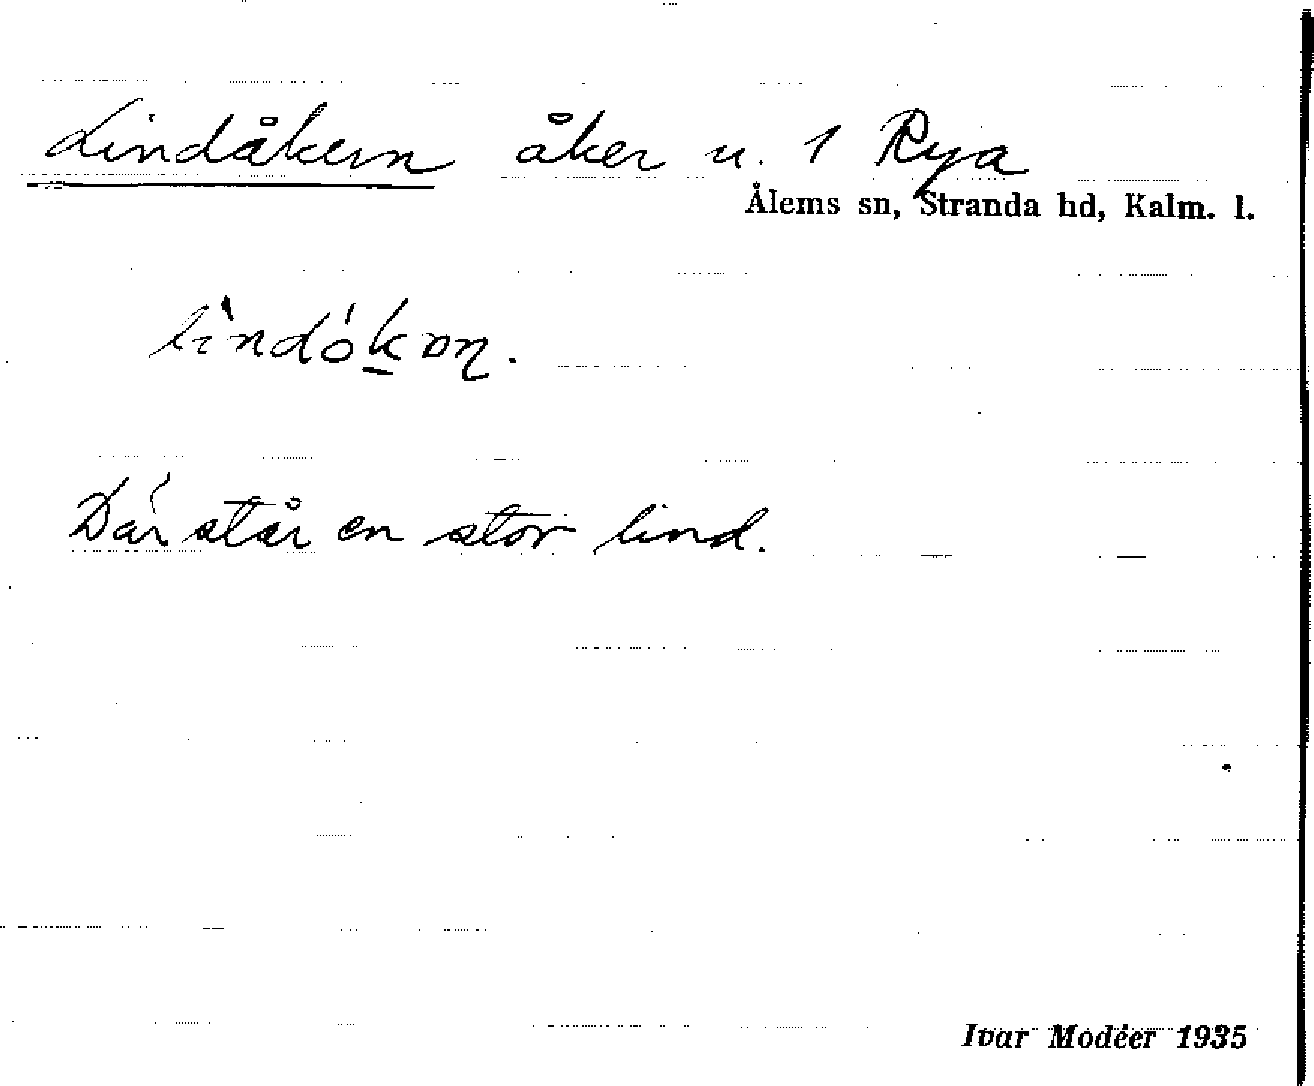 Lindåkern åker u. 1 Rya
Ålems sn, Stranda hd, Kalm. l.
Där står en stor lind.
Ivar Modéer 1935